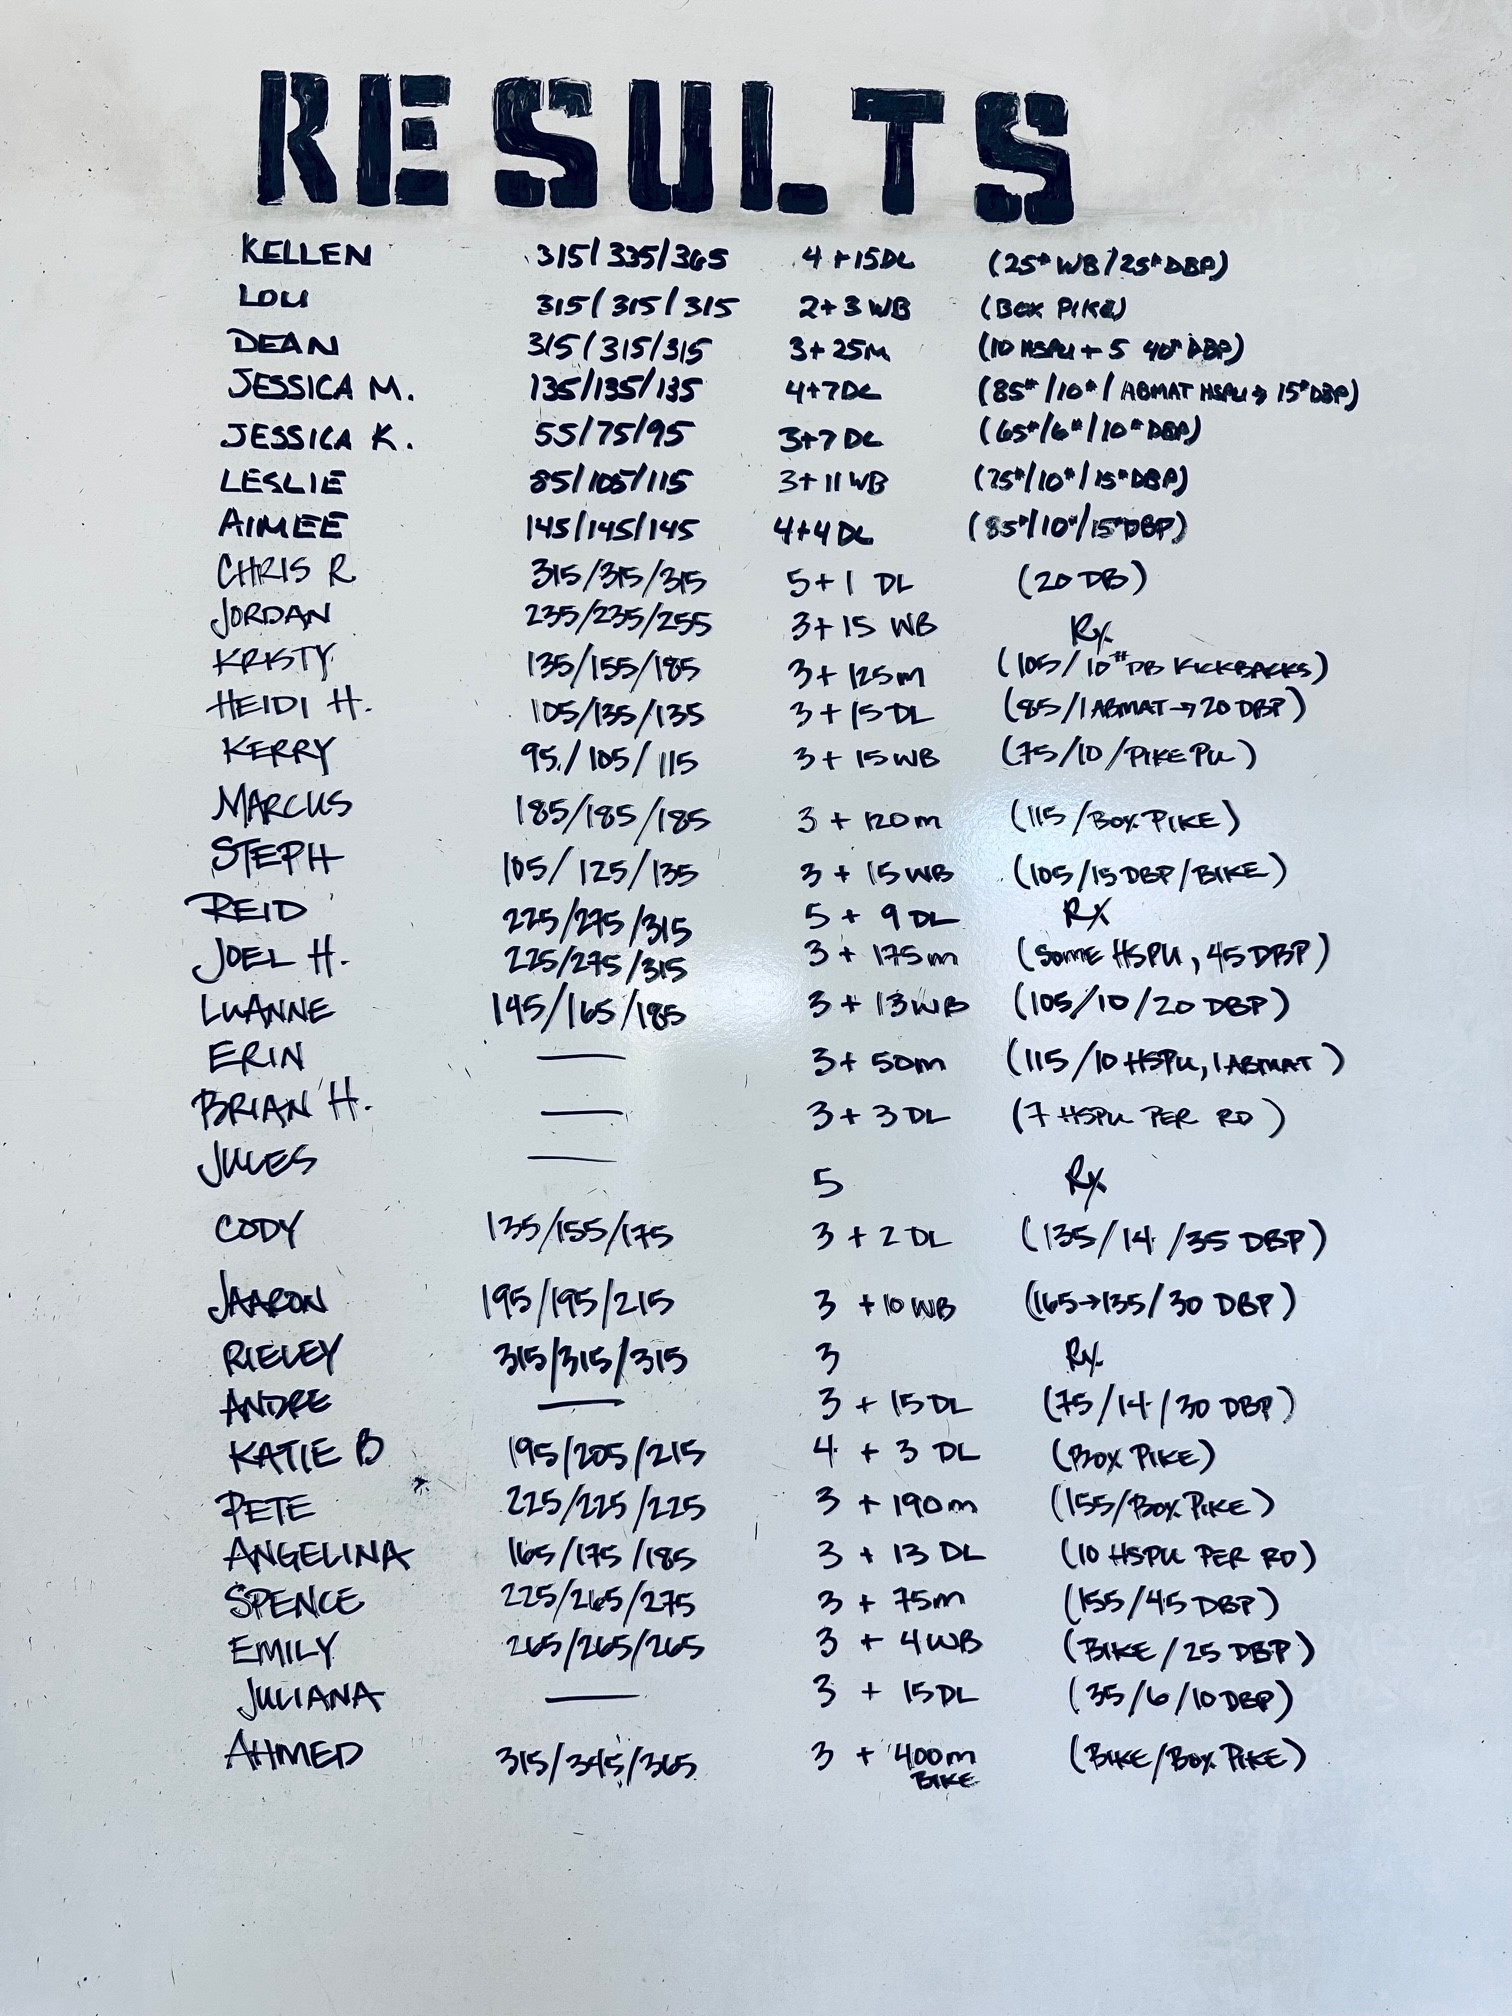 RESULTS
KELLEN 315/335/365 4 + 15 DL (25# WB/25# DBP)
LOU 315/315/315 2 + 3 WB (BOX PIKE)
DEAN 315/315/315 3 + 25M (10 HSPU + 5 40# DBP)
JESSICA M. 135/135/135 4 + 7 DL (85#/10#/ABMAT HSPU → 15# DBP)
JESSICA K. 55/75/95 3+7 DL (65#/6#/10# DBP)
LESLIE 85/105/115 3 + 11 WB (75#/10#/15# DBP)
AIMEE 145/145/145 4+4 DL (85#/10#/15# DBP)
CHRIS R 315/315/315 5 + 1 DL (20 DB)
JORDAN 235/235/255 3 + 15 WB Rx
KRISTY 135/155/185 3 + 125m (105/10# DB KICKBACKS)
HEIDI H. 105/135/135 3 + 15 DL (85/1 ABMAT → 20 DBP)
KERRY 95/105/115 3 + 15 WB (75/10/PIKE PU)
MARCUS 185/185/185 3 + 120m (115/BOX PIKE)
STEPH 105/125/135 3 + 15 WB (105/15 DBP/BIKE)
REID 225/275/315 5 + 9 DL RX
JOEL H. 225/275/315 3 + 175m (SOME HSPU, 45 DBP)
LUANNE 145/165/185 3 + 13 WB (105/10/20 DBP)
ERIN — 3 + 50m (115/10 HSPU, 1 ABMAT)
BRIAN H. — 3 + 3 DL (7 HSPU PER RD)
JULES — 5 Rx
CODY 135/155/175 3 + 2 DL (135/14/35 DBP)
JAARON 195/195/215 3 + 10 WB (165→135/30 DBP)
RIELEY 315/315/315 3 Rx
ANDRE — 3 + 15 DL (75/14/30 DBP)
KATIE B 195/205/215 4 + 3 DL (BOX PIKE)
PETE 225/225/225 3 + 190m (155/BOX PIKE)
ANGELINA 165/175/185 3 + 13 DL (10 HSPU PER RD)
SPENCE 225/265/275 3 + 75m (155/45 DBP)
EMILY 265/265/265 3 + 4 WB (BIKE/25 DBP)
JULIANA — 3 + 15 DL (35/6/10 DBP)
AHMED 315/345/365 3 + 400m (BIKE/BOX PIKE)
BIKE